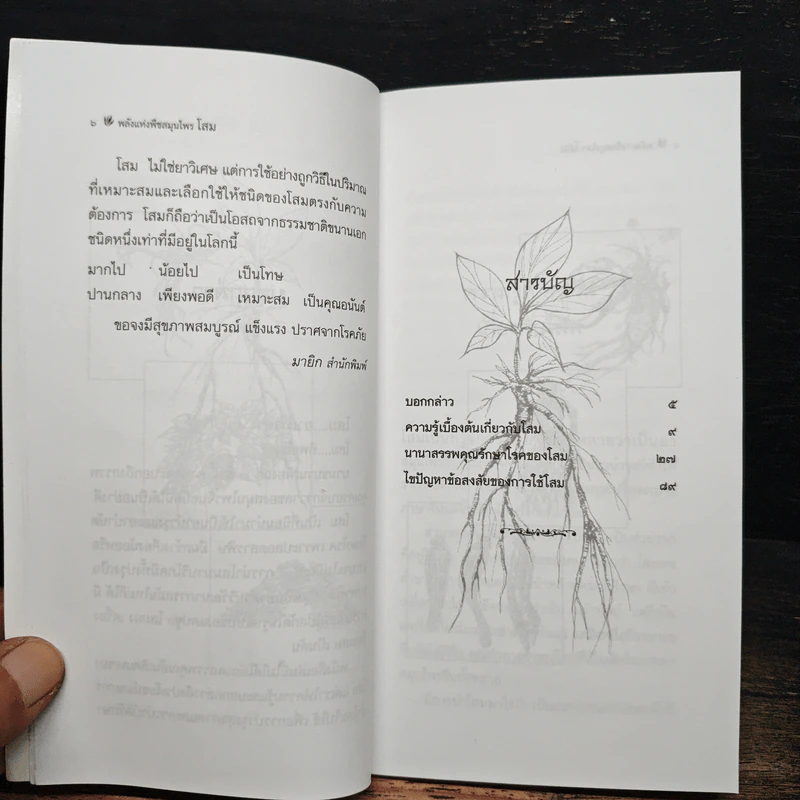 ๖ พลังแห่งพืชสมุนไพร โสม
โสม ไม่ใช่ยาวิเศษ แต่การใช้อย่างถูกวิธีในปริมาณ
ที่เหมาะสมและเลือกใช้ให้ชนิดของโสมตรงกับความ
ต้องการ โสมก็ถือว่าเป็นโอสถจากธรรมชาติขนานเอก
ชนิดหนึ่งเท่าที่มีอยู่ในโลกนี้
มากไป น้อยไป เป็นโทษ
ปานกลาง เพียงพอดี เหมาะสม เป็นคุณอนันต์
ขอจงมีสุขภาพสมบูรณ์ แข็งแรง ปราศจากโรคภัย
มายิก สำนักพิมพ์
สารบัญ
บอกกล่าว ๕
ความรู้เบื้องต้นเกี่ยวกับโสม ๙
นานาสรรพคุณรักษาโรคของโสม ๒๗
ไขปัญหาข้อสงสัยของการใช้โสม ๘๙